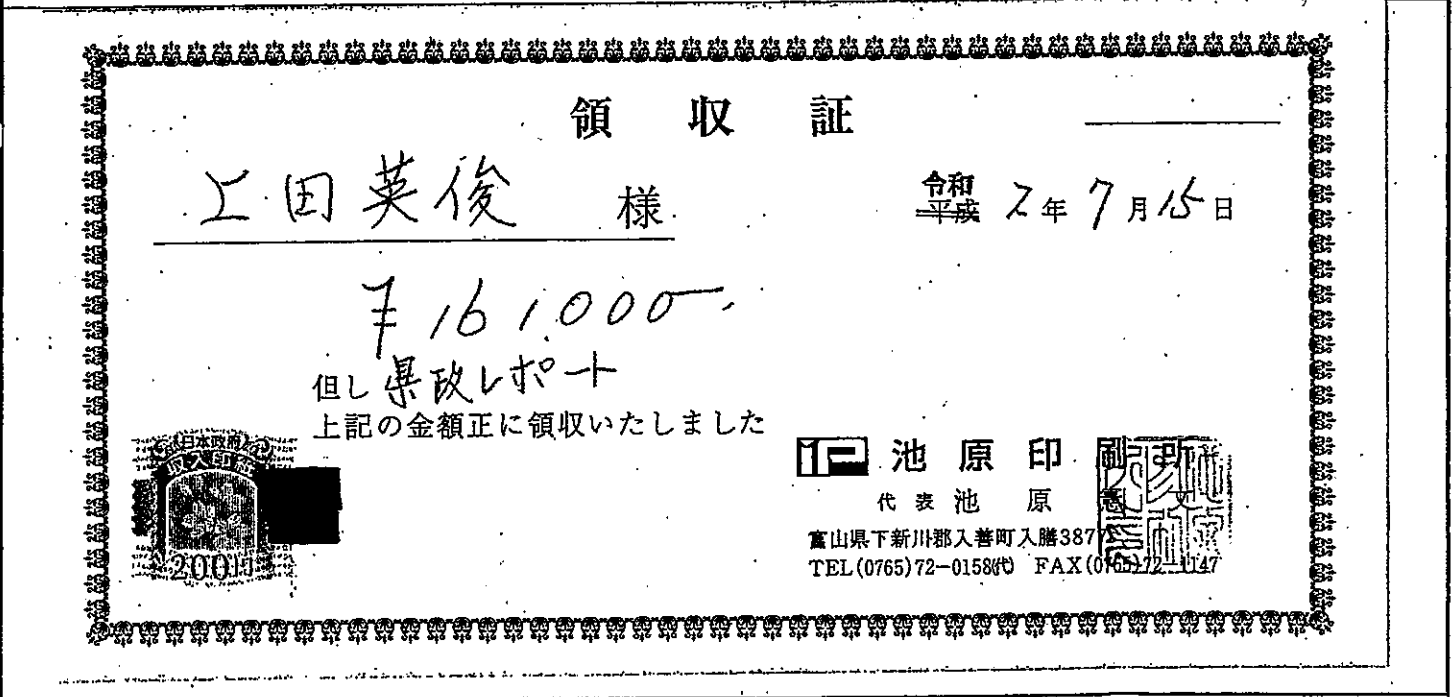 領収証
上田英俊 様
令和 平成 2年7月15日
¥161,000-
但し 県政レポート
上記の金額正に領収いたしました
日本政府
収入印紙
200円
池原印刷所
代表 池原憲文
富山県下新川郡入善町入膳3877
TEL(0765)72-0158(代) FAX(0765)72-1147